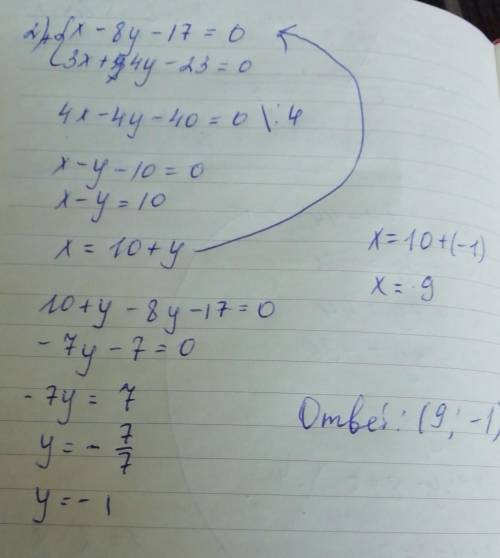 2) { x - 8y - 17 = 0
3x + 4y - 23 = 0
4x - 4y - 40 = 0 \: 4
x - y - 10 = 0
x - y = 10
x = 10 + y
10 + y - 8y - 17 = 0
- 7y - 7 = 0
- 7y = 7
y = - 7/7
y = - 1
x = 10 + (-1)
x = 9
Ответ: (9; -1)